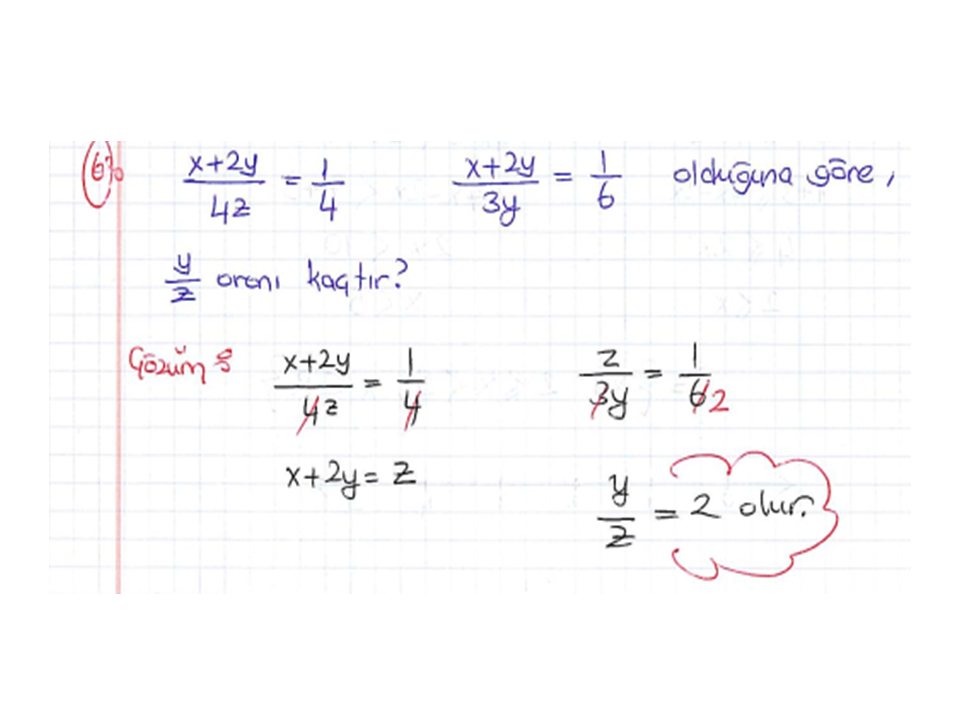 6) (x+2y)/(4z) = 1/4 (x+2y)/(3y) = 1/6 olduğuna göre,
y/z oranı kaçtır?
Çözüm: (x+2y)/(4z) = 1/4 z/(3y) = 1/6 2
x+2y = z y/z = 2 olur.